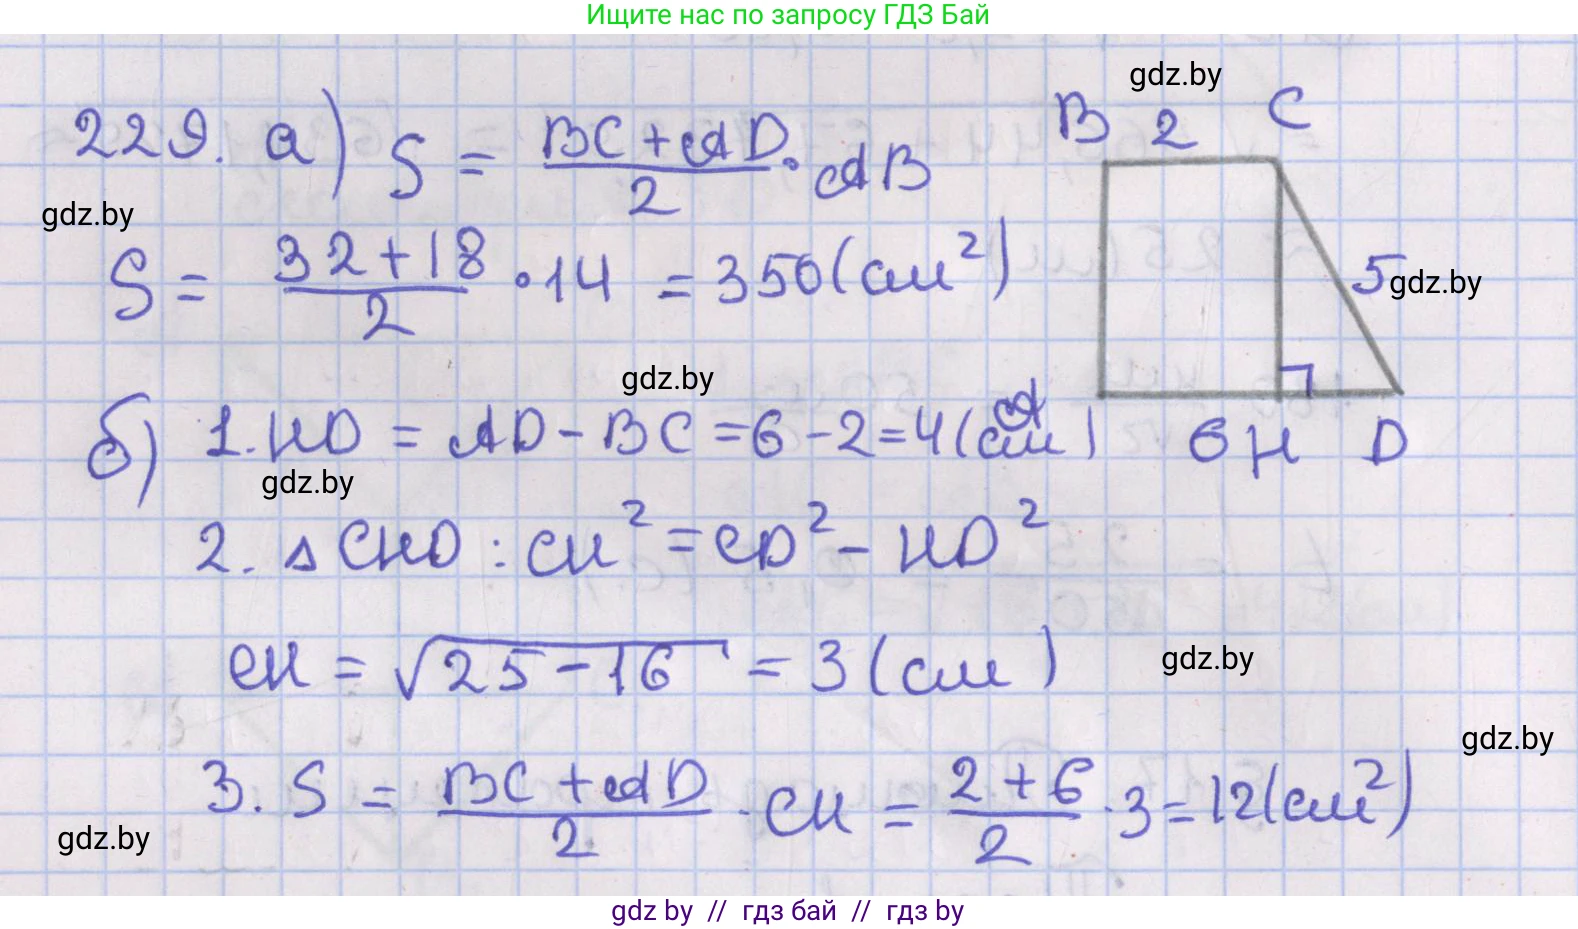 Ищите нас по запросу ГДЗ Бай
gdz.by
229. а) S = (BC + AD)/2 · AB
B 2 C
gdz.by
S = (32 + 18)/2 · 14 = 350 (см²)
5
gdz.by
gdz.by
б) 1. HD = AD - BC = 6 - 2 = 4 (см)
A
6 H D
gdz.by
2. △ CHD : CH² = CD² - HD²
CH = √(25 - 16) = 3 (см)
gdz.by
gdz.by
3. S = (BC + AD)/2 · CH = (2 + 6)/2 · 3 = 12 (см²)
gdz.by
gdz by // гдз бай // гдз by